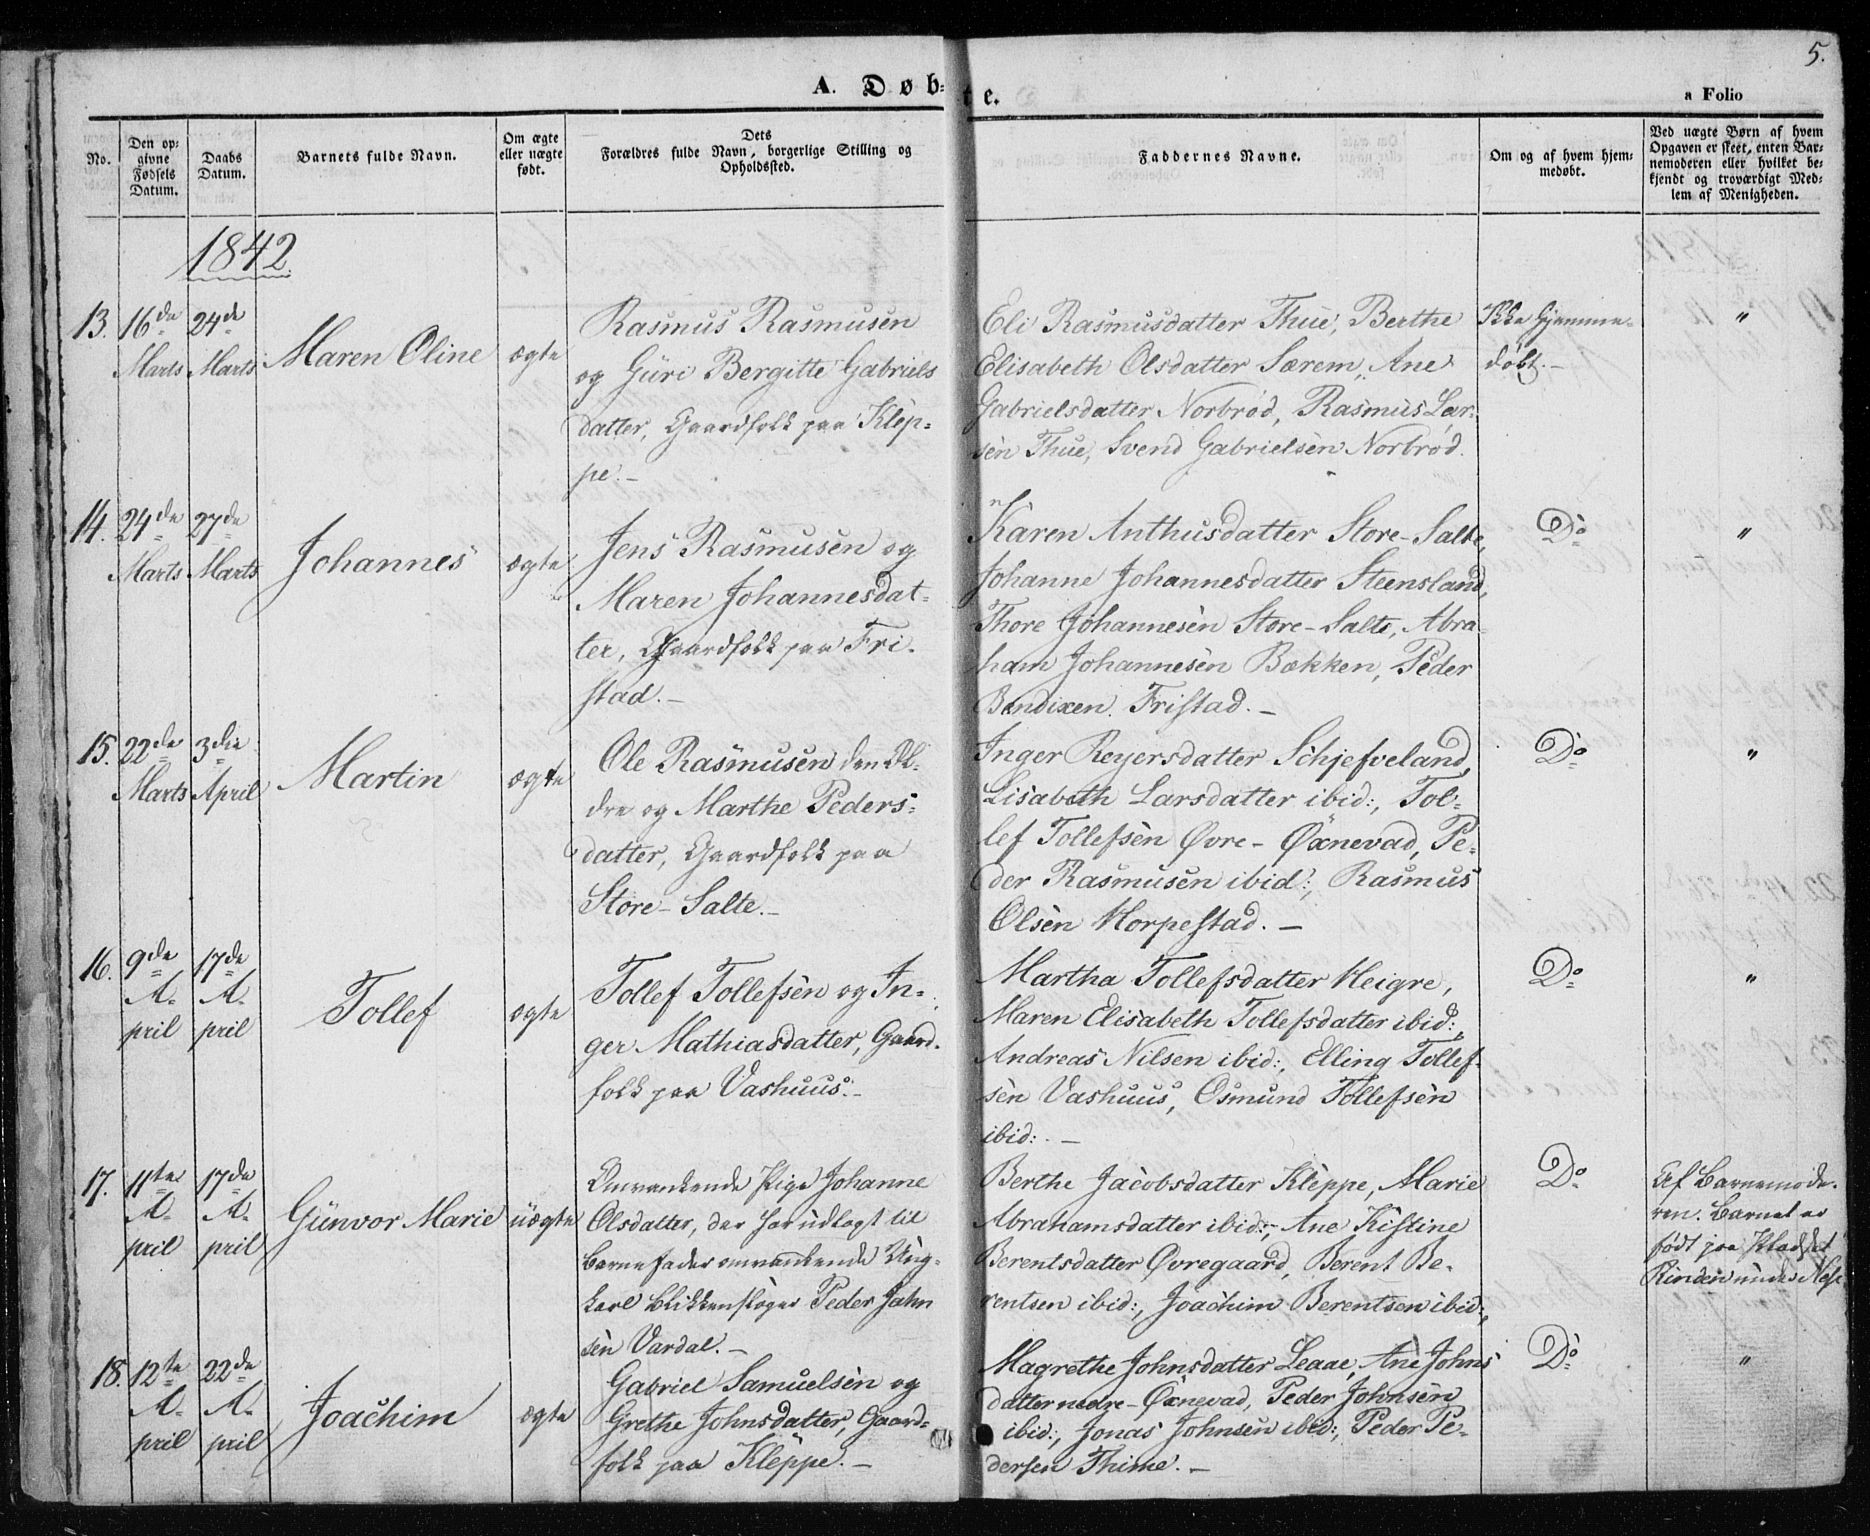 5.
A. Døbte.
a Folio
No.
Den op-
givne
Fødsels
Datum.
Daabs
Datum.
Barnets fulde Navn.
Om ægte
eller uægte
født.
Dets
Forældres fulde Navn, borgerlige Stilling og
Opholdssted.
Faddernes Navne.
Om og af hvem hjem-
medøbt.
Ved uægte Børn af hvem
Opgaven er skeet, enten Bar-
nemoderen eller hvilket be-
kjendt og troværdigt Med-
lem af Menigheden.
1842
13. 16de
Marts
24de
Marts
Maren Oline
ægte
Rasmus Rasmusen
og Güri Bergitte Gabriels
datter, Gaardfolk paa Klep-
pe.-
Eli Rasmusdatter Thue, Berthe
Elisabeth Olsdatter Særem, Ane
Gabrielsdatter Norbrød, Rasmus Lar-
sen Thue, Svend Gabrielsen Norbrød.
Ikke Hjemme-
døbt.-
"
14. 24de
Marts
27de
Marts
Johannes
ægte
Jens Rasmusen og
Maren Johannesdat-
ter, Gaardfolk paa Fri-
stad.-
Karen Anthusdatter Store-Salte,
Johanne Johannesdatter Steensland,
Thore Johannesen Store-Salte, Abra-
ham Johannesen Bækken, Peder
Bendixen Fristad.-
Do
"
15. 22de
Marts
3die
April
Martin
ægte
Ole Rasmusen den Æl-
dre og Marthe Peders-
datter, Gaardfolk paa
Store-Salte.-
Inger Reyersdatter Schjefveland,
Lisabeth Larsdatter ibid:, Tol-
lef Tollefsen Øvre-Øxnevad, Pe-
der Rasmusen ibid:, Rasmus
Olsen Horpestad.-
Do
"
16. 9de
A-
pril
17de
A-
pril
Tollef
ægte
Tollef Tollefsen og In-
ger Mathiasdatter, Gaard-
folk paa Vashuus.-
Martha Tollefsdatter Heigre,
Maren Elisabeth Tollefsdatter ibid:,
Andreas Nilsen ibid:, Elling Tollef-
sen Vashuus, Osmund Tollefsen
ibid:.-
Do
"
17. 11te
A-
pril
17de
A-
pril
Günvor Marie
uægte
Omvankende Pige Johanne
Olsdatter, der har udlagt til
Barnefader omvankende Ung-
karl Blikkenslager Peder Jahn
sen Vardal.-
Berthe Jacobsdatter Kleppe, Marie
Abrahamsdatter ibid:, Ane Kistine
Berentsdatter Øvregaard, Berent Be-
rentsen ibid:, Joachim Berentsen ibid:,
Do
Af Barnemode-
ren. Barnet er
født paa Pladset
Rinden under
18. 12te
A-
pril
22de
A-
pril
Joachim
ægte
Gabriel Samuelsen og
Grethe Johnsdatter, Gaard-
folk paa Kleppe.-
Magrethe Johnsdatter Leaae, Ane Johns
datter nedre-Øxnevad, Peder Johnsen
ibid:, Jonas Johnsen ibid:, Peder Pe-
dersen Thime.-
Do
"